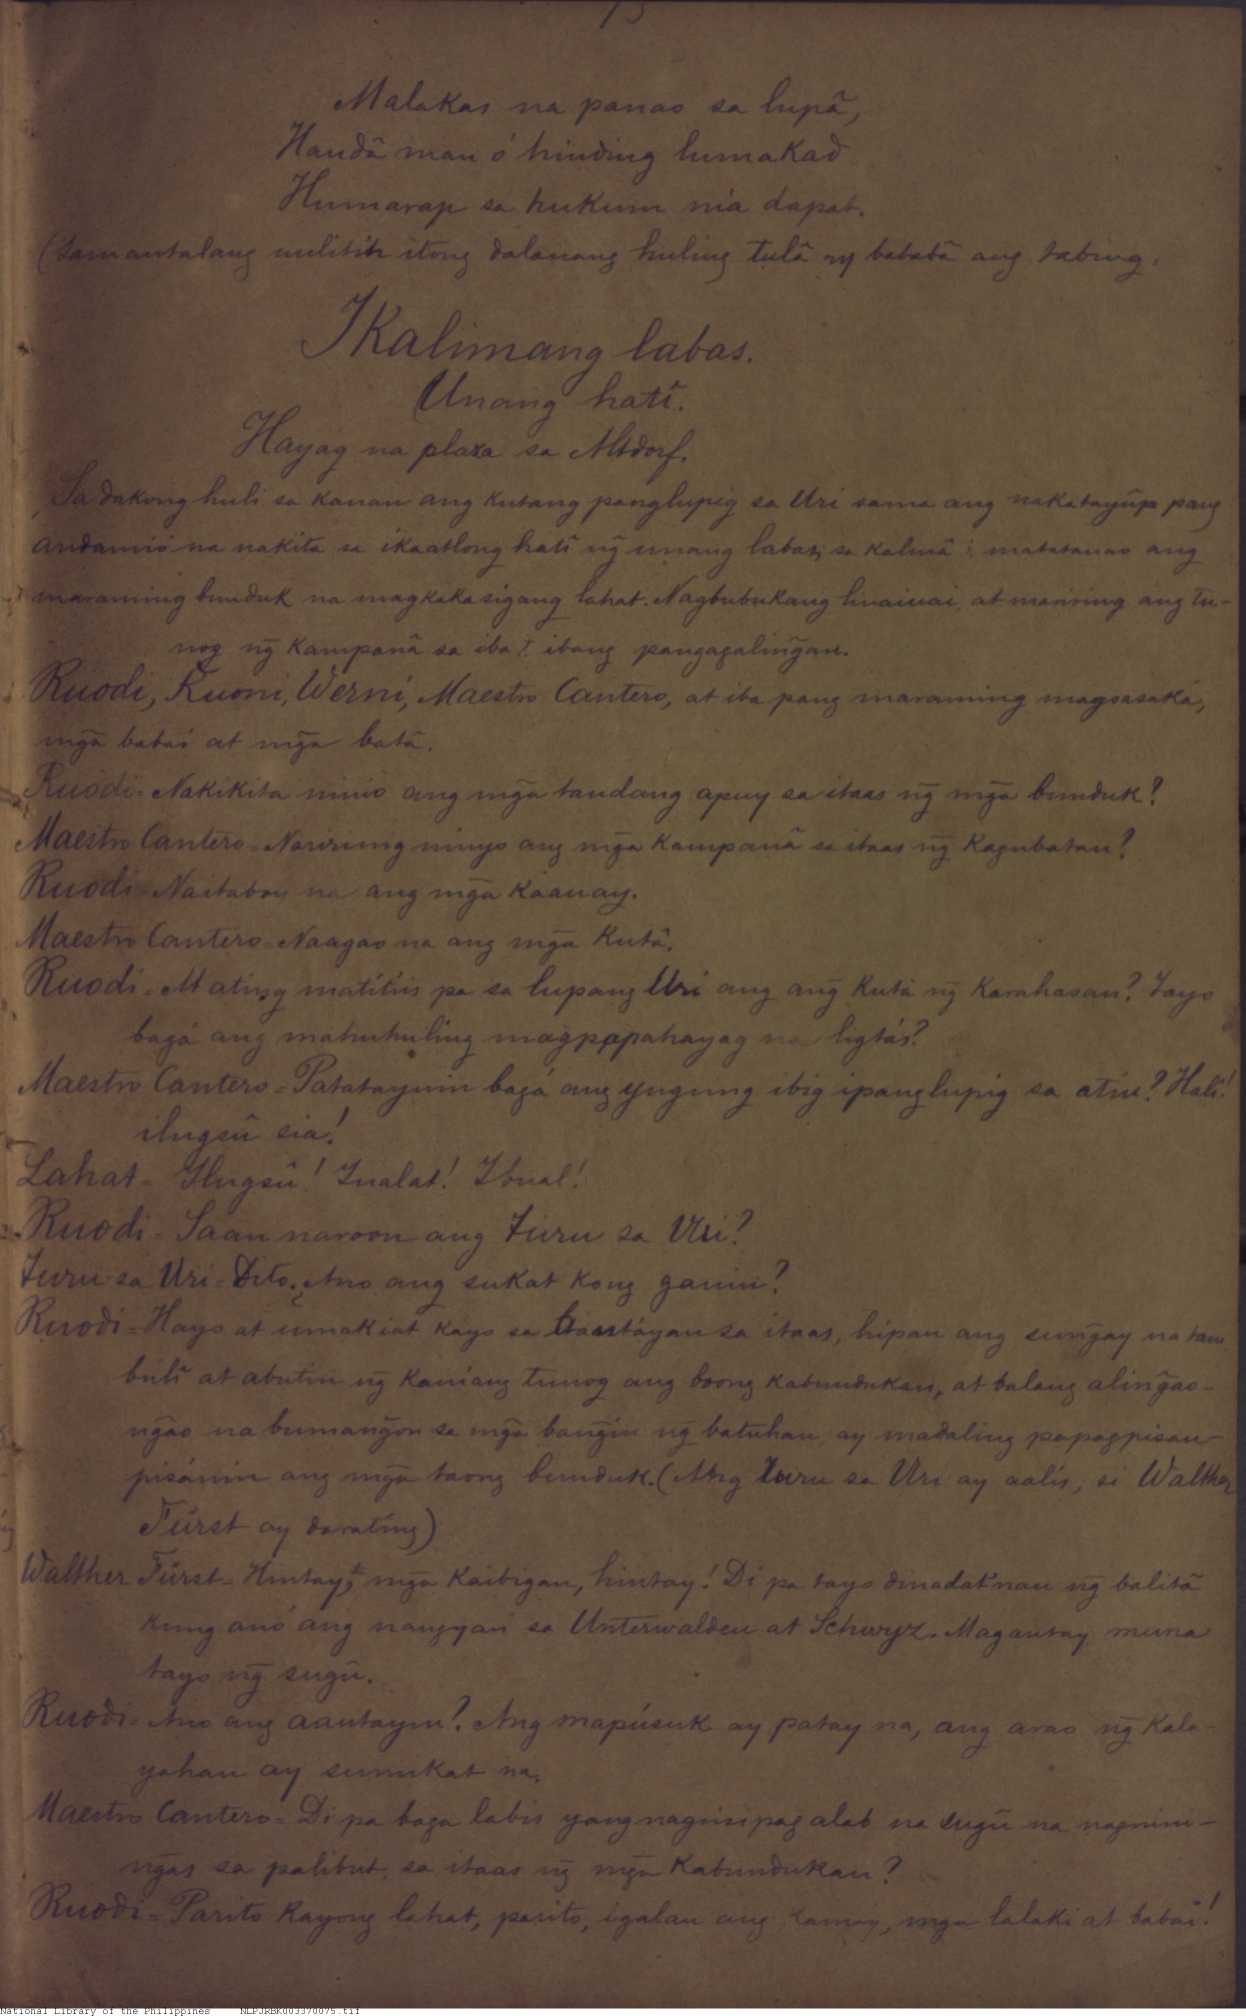 75
Malakas na panao sa lupâ,
Handâ man ó hinding lumakad
Humarap sa hukum nia dapat.
(Samantalang uulitin itong dalauang huling tulâ ay bababâ ang tabing.
IKalimang labas.
Unang hatî.
Hayag na plaza sa Altdorf.
Sa dakong huli sa kanan ang kutang panglupig sa Uri sama ang nakatayûpa pang
andamió na nakita sa ikaatlong hatî ng̃ unang labas, sa kaliuâ i matatanao ang
maraming bunduk na magkakasigang lahat. Nagbubukang liuaiuai, at maririnig ang tu-
nog ng̃ kampanâ sa iba't ibang pangagaling̃an.
Ruodi, Kuoni, Werni, Maestro Cantero, at iba pang maraming magsasaká,
mg̃a babai at mg̃a batà.
Ruodi= Nakikita ninio ang mg̃a tandang apuy sa itaas ng̃ mg̃a bunduk?
Maestro Cantero= Naririnig ninyo ang mg̃a kampanâ sa itaas ng̃ kagubatan?
Ruodi= Naitaboy na ang mg̃a kaauay.
Maestro Cantero= Naagao na ang mg̃a kutà.
Ruodi= At ating matitiis pa sa lupang Uri ang ang̃ kutà ng̃ karahasan? Tayo
bagá ang mahuhuling magpapahayag na ligtás?
Maestro Cantero= Patatayuin bagá ang yugung ibig ipanglupig sa atin? Hali!
ilugsû sia!
Lahat= Ilugsû! Iualat! Ibual!
Ruodi= Saan naroon ang turu sa Uri?
Turu sa Uri= Dito. Ano ang sukat kong gauin?
Ruodi= Hayo at umakiat kayo sa bantáyan sa itaas, hípan ang sung̃ay na tam
bulî at abutin ng̃ kaniang tunog ang boong kabundukan, at balang aling̃ao-
ng̃ao na bumang̃on sa mg̃a bang̃in ng̃ batuhan ay madaling papagpisan-
pisánin ang mg̃a taong bunduk. (Ang turu sa Uri ay aalis, si Walther
Fürst ay darating)
Walther Fürst= Hintay, mg̃a kaibigan, hintay! Di pa tayo dinadat'nan ng̃ balitâ
kung anó ang nangyari sa Unterwalden at Schwyz. Magantay muna
tayo ng̃ sugû.
Ruodi= Ano ang aantayin? Ang mapúsuk ay patay na, ang arao ng̃ kala-
yahan ay sumukat na.
Maestro Cantero= Di pa baga labis yang nagsisipag alab na sugû na nagnini-
ng̃as sa palibut sa itaas ng̃ mg̃a kabundukan?
Ruodi= Parito kayong lahat, parito, igalau ang kamay, mga lalaki at babai!
National Library of the Philippines NLPJRBK003370075.tif